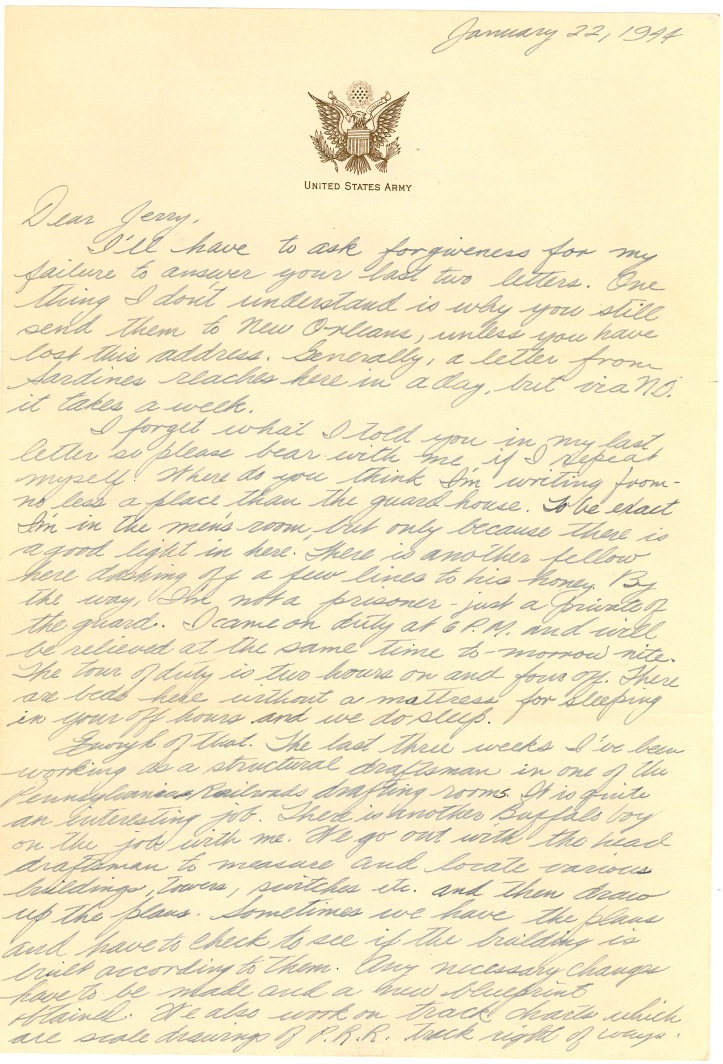 January 22, 1944
UNITED STATES ARMY
Dear Jerry,
I'll have to ask forgiveness for my
failure to answer your last two letters. One
thing I don't understand is why you still
send them to New Orleans, unless you have
lost this address. Generally, a letter from
Sardines reaches here in a day, but via N.O.
it takes a week.
I forget what I told you in my last
letter so please bear with me if I repeat
myself. Where do you think I'm writing from-
no less a place than the guard house. To be exact
I'm in the men's room, but only because there is
a good light in here. There is another fellow
here dashing off a few lines to his honey. By
the way, I'm not a prisoner - just a private of
the guard. I came on duty at 6 P.M. and will
be relieved at the same time to-morrow nite.
The tour of duty is two hours on and four off. There
are beds here without a mattress for sleeping
in your off hours and we do sleep.
Enough of that. The last three weeks I've been
working as a structural draftsman in one of the
Pennsylvania Railroads drafting rooms. It is quite
an interesting job. There is another Buffalo boy
on the job with me. We go out with the head
draftsman to measure and locate various
buildings, towers, switches etc. and then draw
up the plans. Sometimes we have the plans
and have to check to see if the building is
built according to them. Any necessary changes
have to be made and a new blueprint
obtained. We also work on track charts which
are scale drawings of P.R.R. track right of ways.